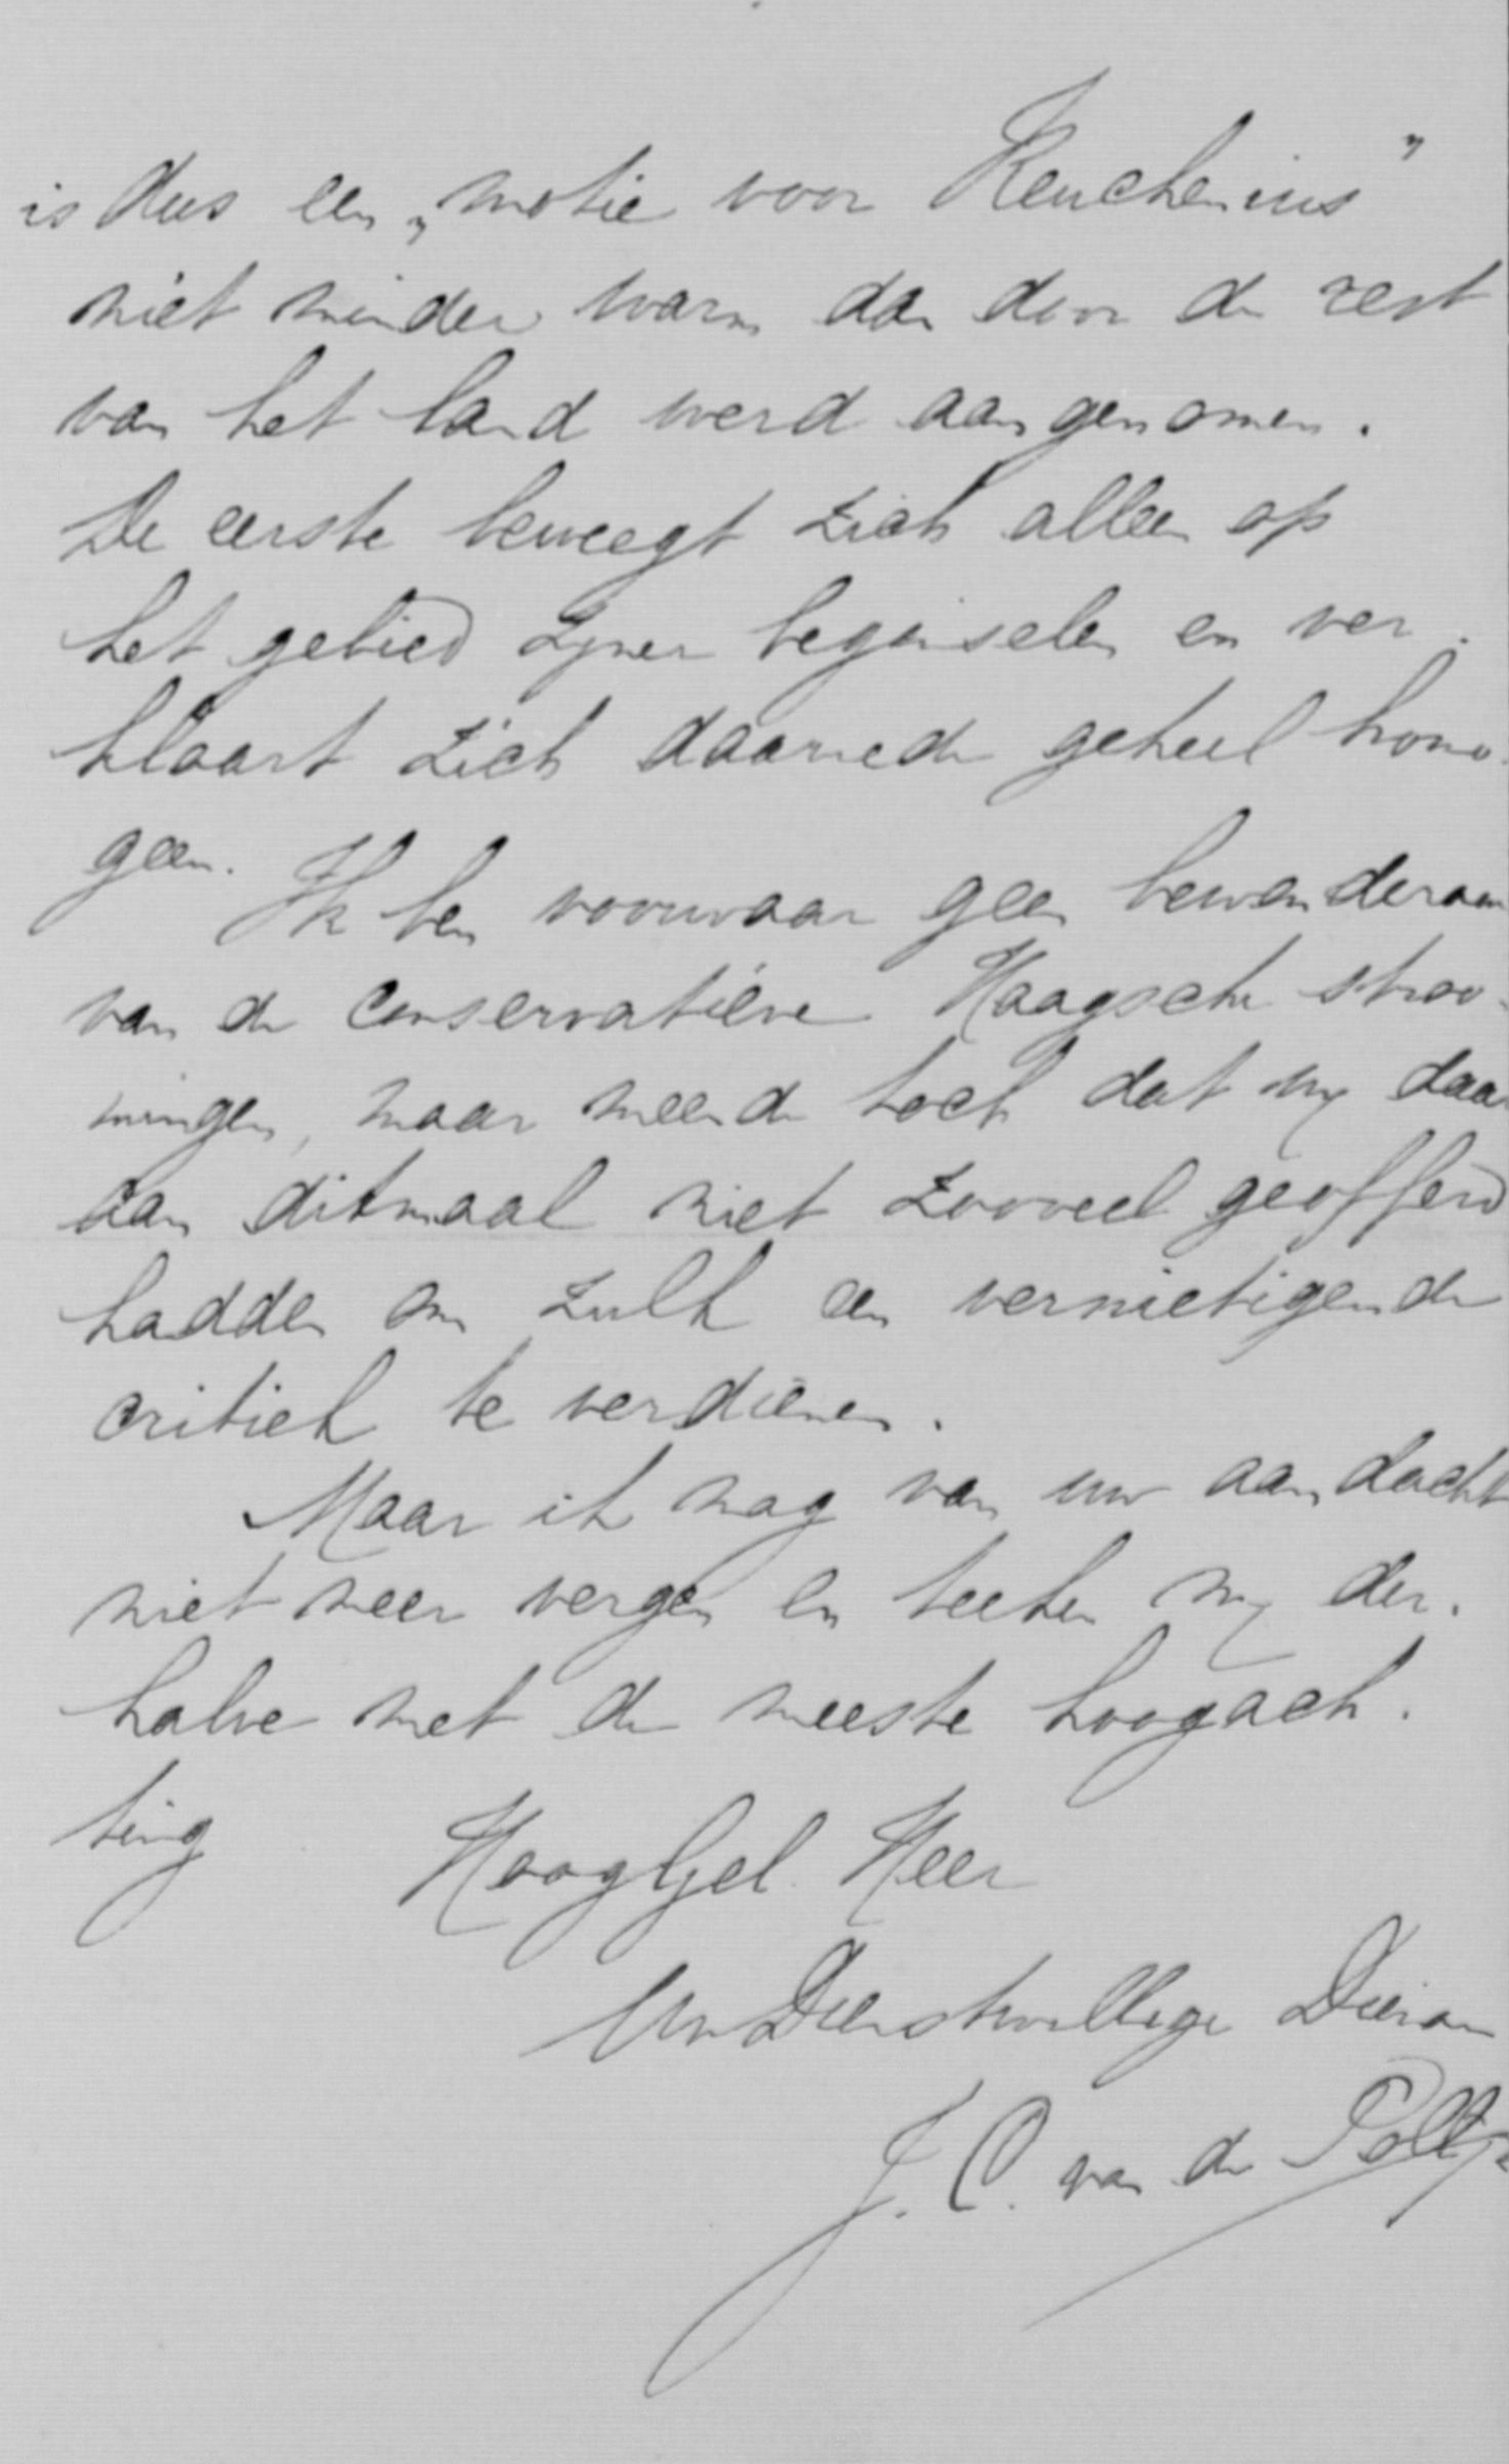 is dus een „motie voor Keuchenius”
niet minder warm dan door de rest
van het land werd aangenomen.
De eerste beweegt zich alleen op
het gebied zijner beginselen en ver-
klaart zich daarmede geheel homo-
geen.
Ik ben voorwaar geen bewonderaar
van de conservatieve Haagsche stroo-
mingen, maar meende toch dat wij daar
aan ditmaal niet zooveel geofferd
hadden om zulk een vernietigende
critiek te verdienen.
Maar ik mag van uw aandacht
niet meer vergen en teeken mij der-
halve met de meeste hoogach-
ting
HoogGel. Heer
Uw Dienstwillige Dienaar
J. C. van de